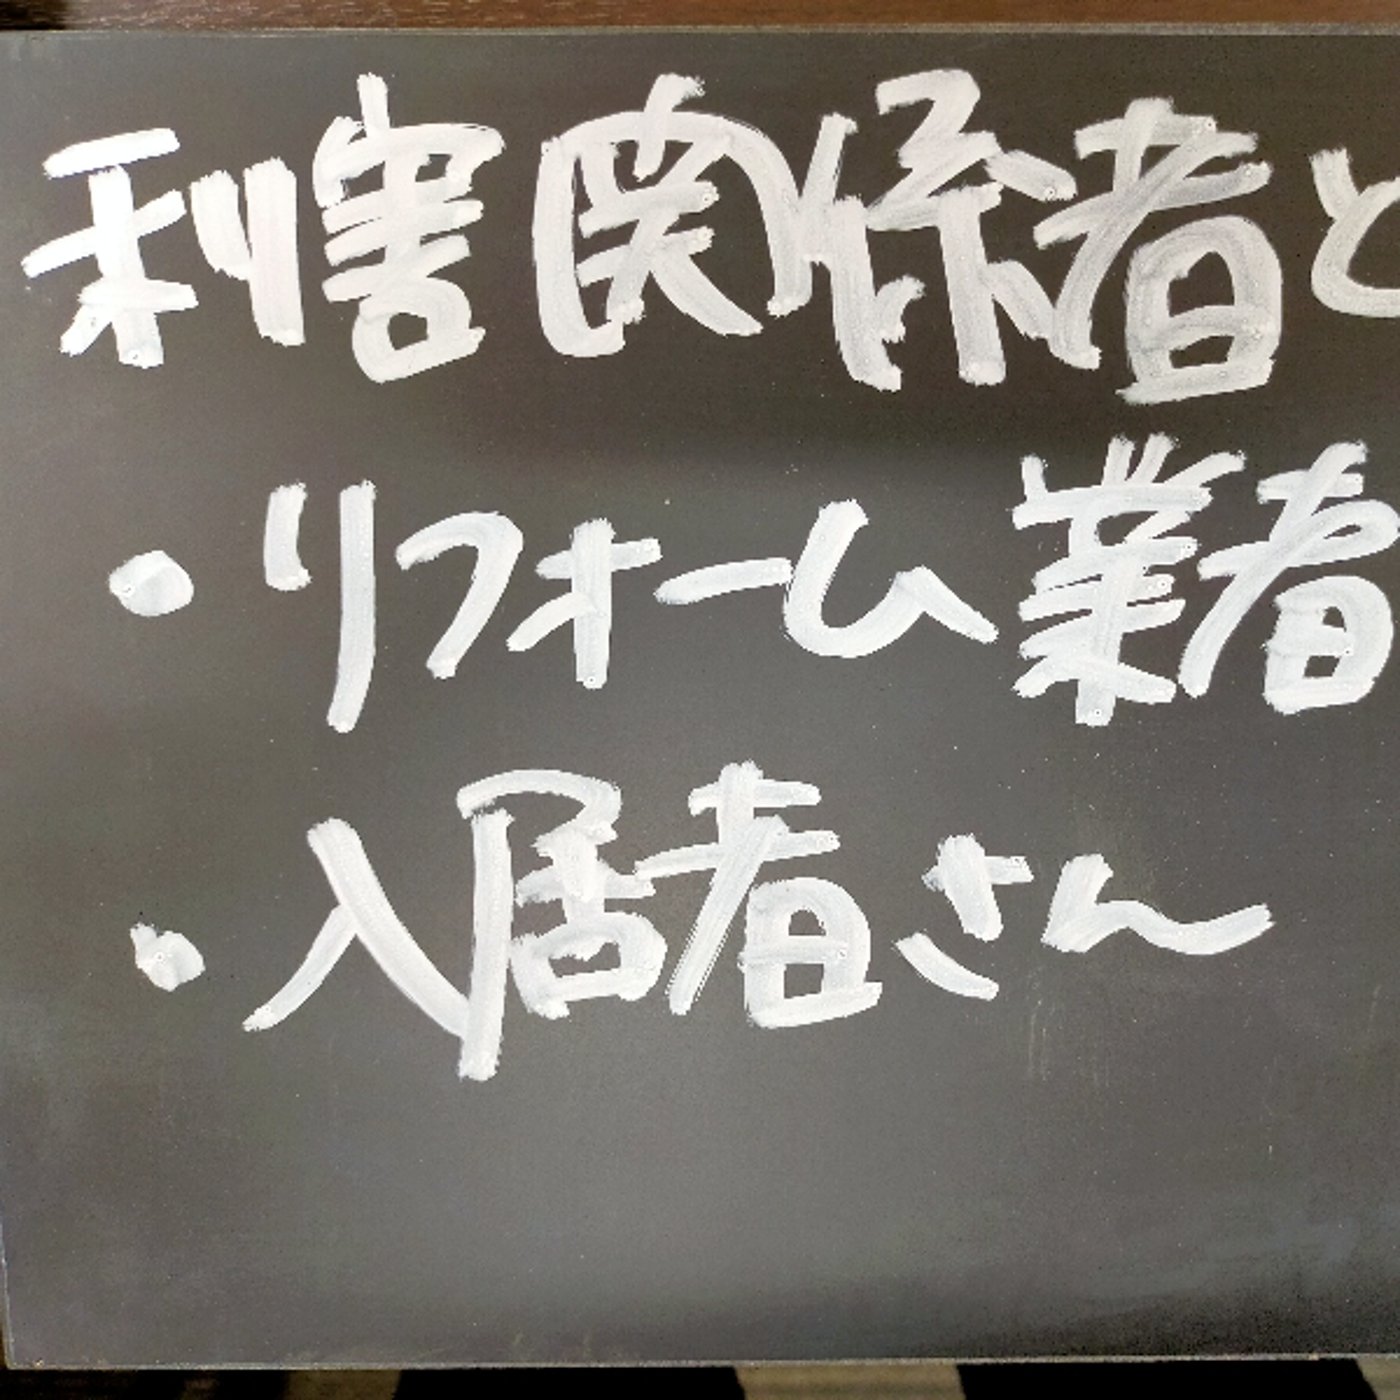 利害関係者と
・リフォーム業者
・入居者さん